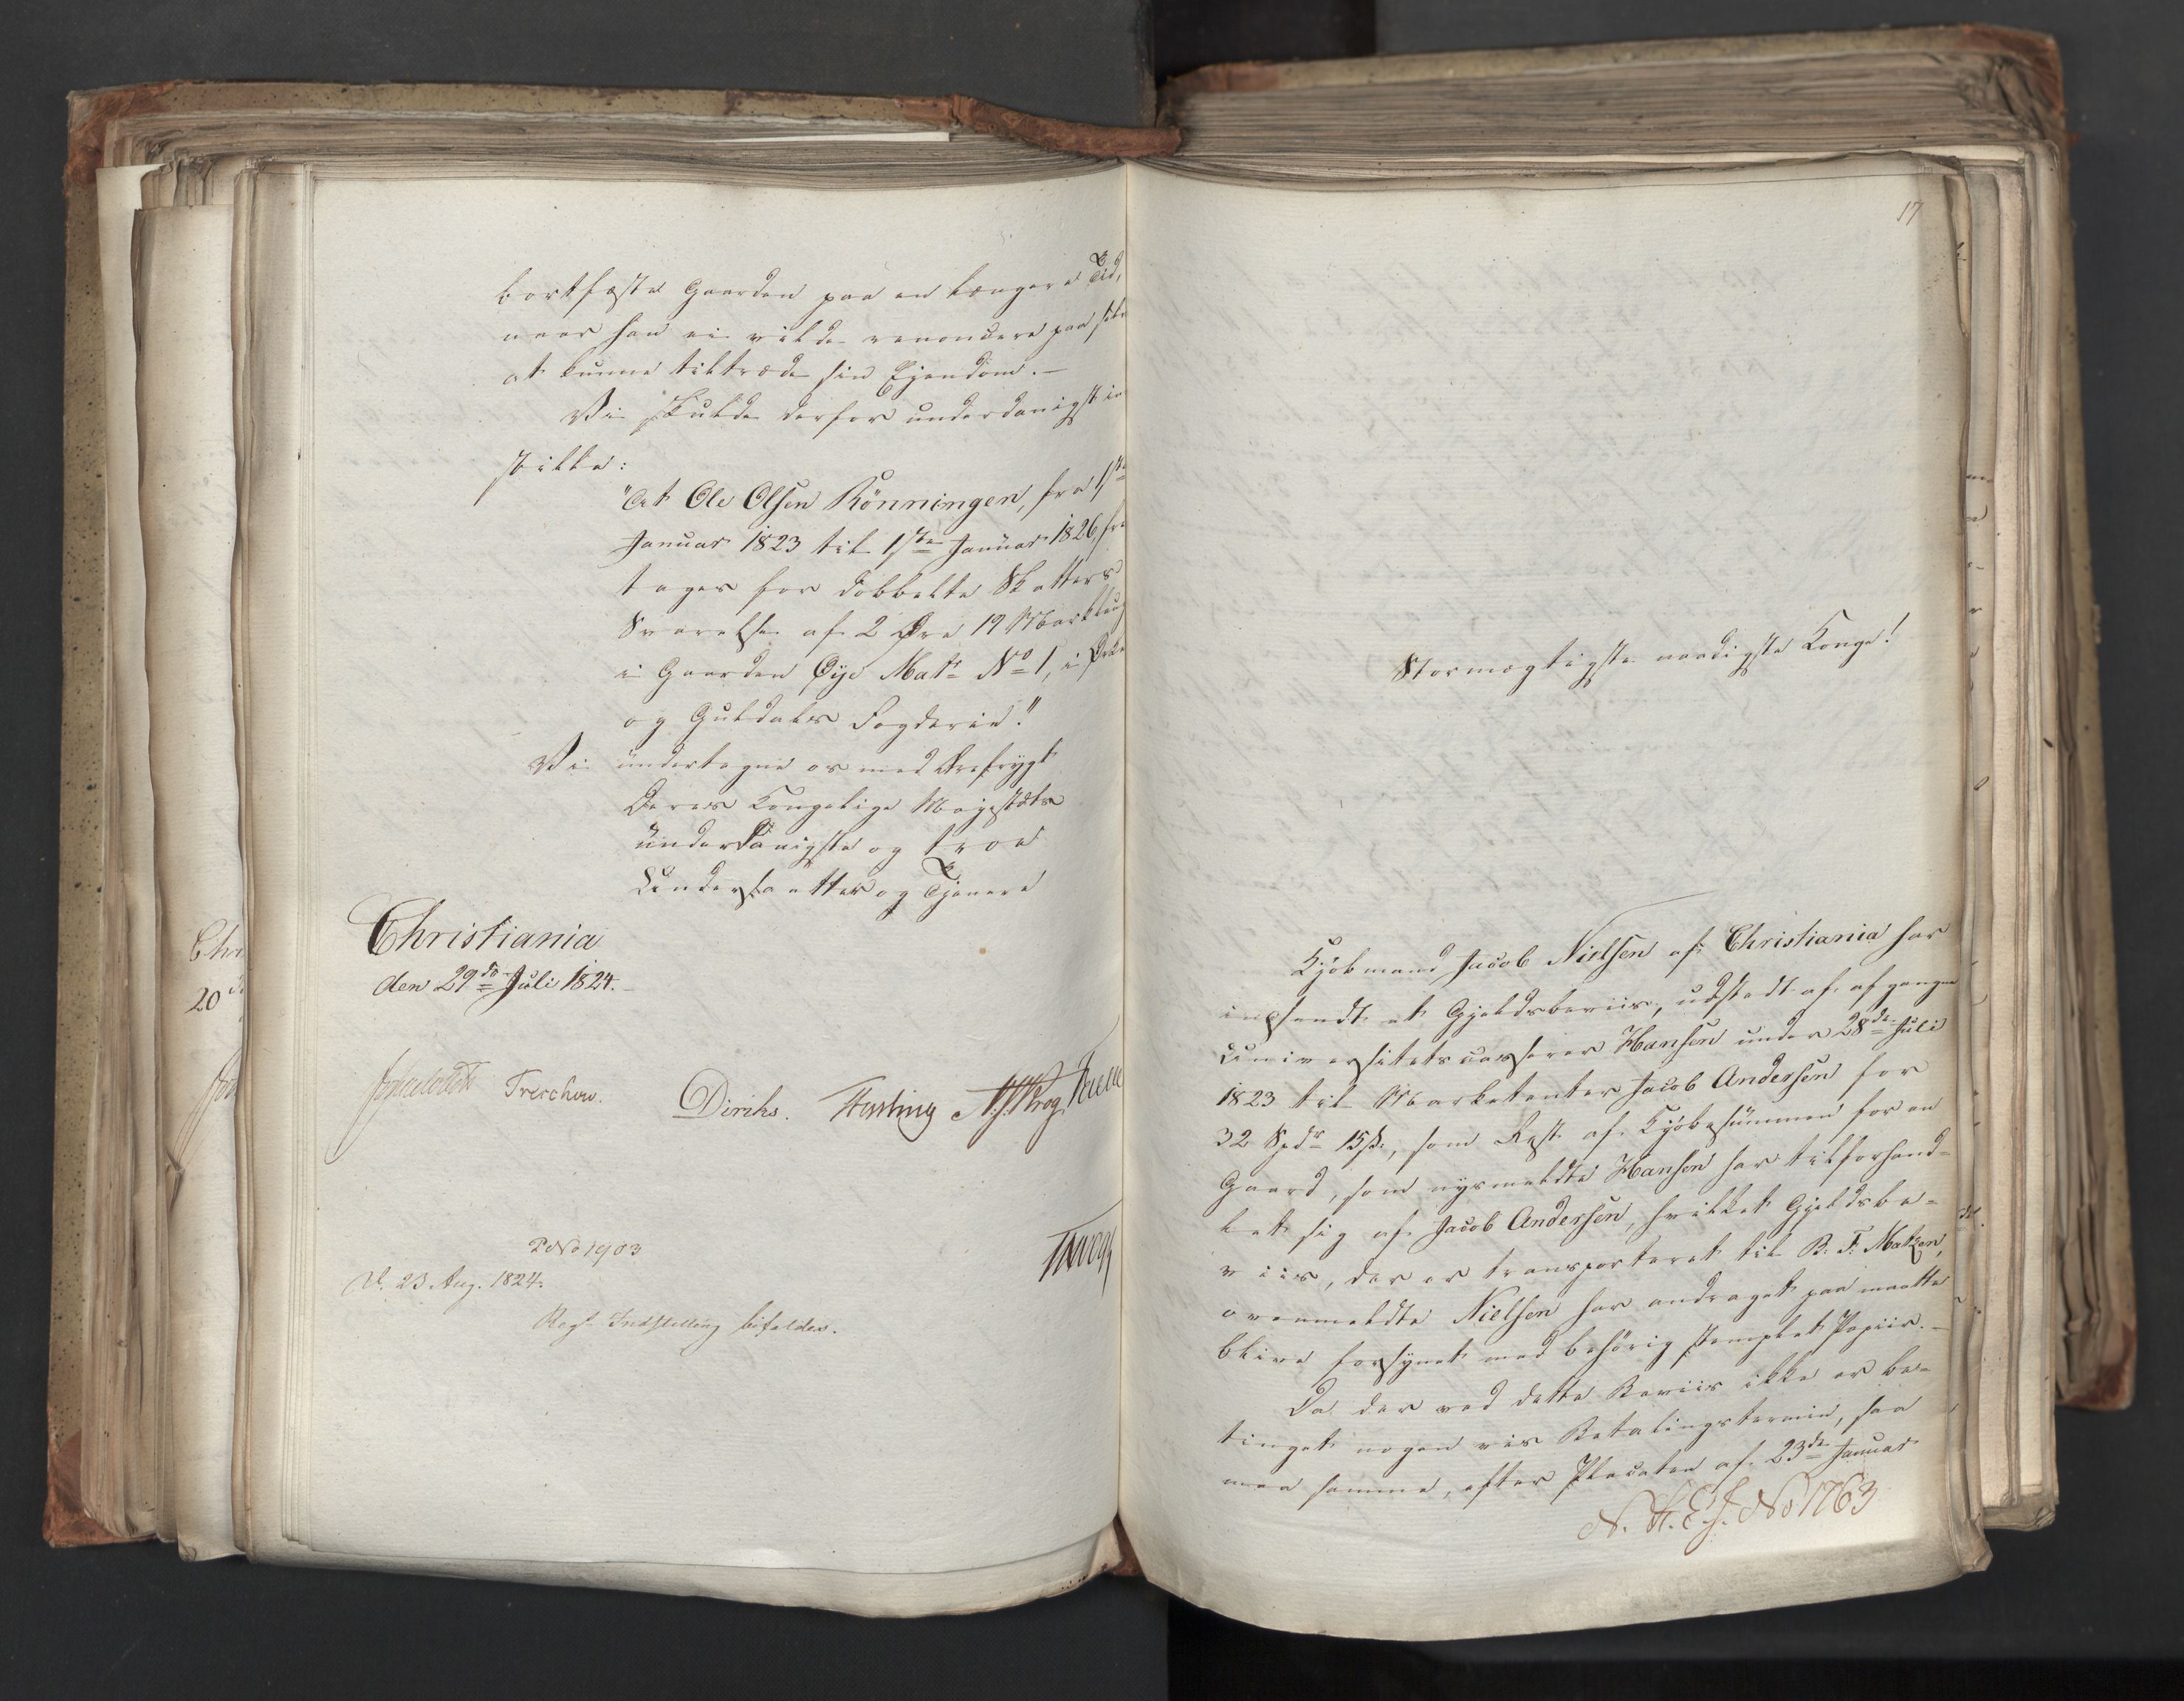 bortfæste Gaarden paa en længere Tid,
naar han ei vilde renoncere paa selv
at kunne tiltræde sin Ejendom. –
Vi skulde derfor underdanigst ind
stille:
"At Ole Olsen Rönningen, fra 1ste
Januar 1823 til 1ste Januar 1826, fri
tages for dobbelte Skatters
Svarelse af 2 Øre 19 Marklaug
i Gaarden Øye Matr No 1, i
og Guldals Fogderie."
Vi undertegne os med Ærefrygt
Deres Kongelige Majestæts
underdanigste og troe
Undersaatter og Tjenere
Christiania
den 29de Juli 1824.
Treschow. Diriks. Hesting Krog
P No 1903
D. 23. Aug. 1824.
Regs Indstilling bifaldes.
17
Stormægtigste naadigste Konge!
Kjöbmand Jacob Nielsen af Christiania har
indsendt et Gjeldsbeviis, udstedt af afgangne
Universitetscasserer Hansen under 28de Juli
1823 til Marketenter Jacob Andersen for
32 Spdr 15 s., som Rest af Kjöbesummen for en
Gaard, som nysmeldte Hansen har tilforhand-
let sig af Jacob Andersen, hvilket Gjeldsbe-
viis, der er transporteret til B. F. Matzen,
ovenmeldte Nielsen har andraget paa maatte
blive forsynet med behörig stemplet Papiir. –
Da der ved dette Beviis ikke er be-
tinget nogen vis Betalingstermin, saa
maa samme, efter Placaten af 23de Januar
No 1763
Chri
20